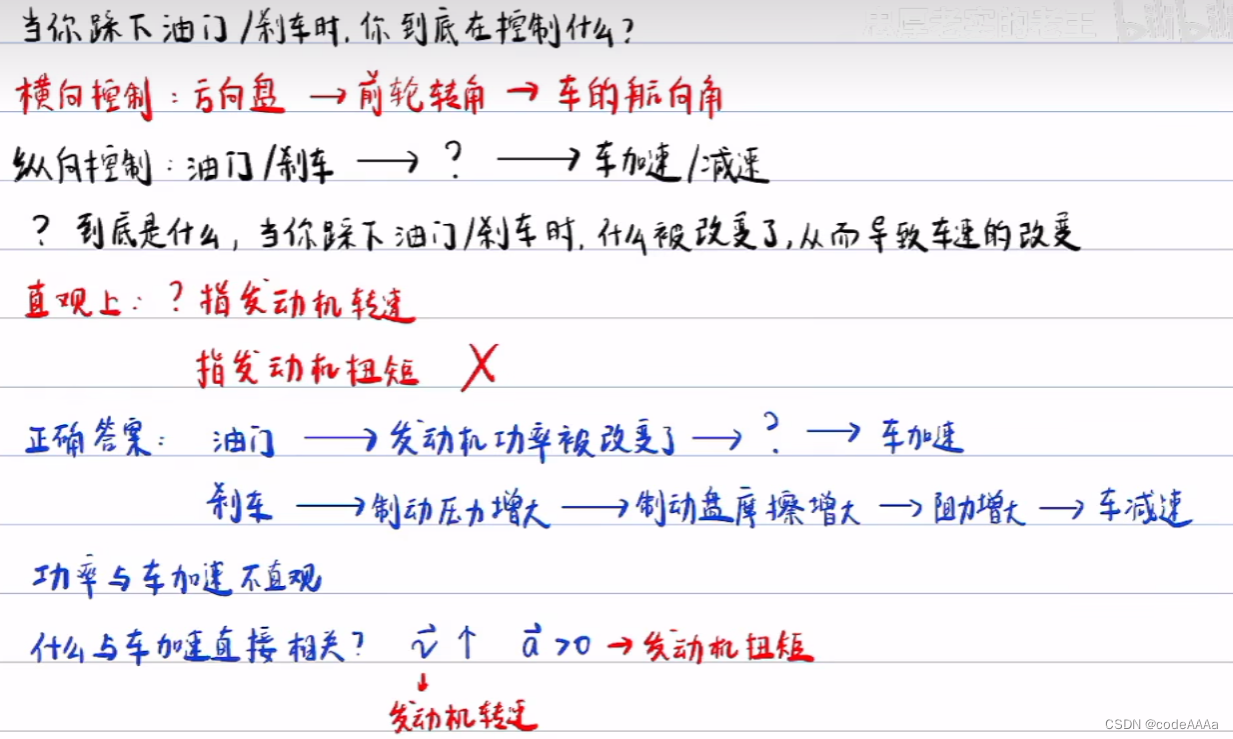 当你踩下油门/刹车时,你到底在控制什么?
横向控制:方向盘 → 前轮转角 → 车的航向角
纵向控制:油门/刹车 → ? → 车加速/减速
? 到底是什么, 当你踩下油门/刹车时, 什么被改变了,从而导致车速的改变
直观上: ? 指发动机转速
指发动机扭矩 X
正确答案: 油门 → 发动机功率被改变了 → ? → 车加速
刹车 → 制动压力增大 → 制动盘摩擦增大 → 阻力增大 → 车减速
功率与车加速不直观
什么与车加速直接相关? v⃗ ↑ a⃗ >0 → 发动机扭矩
↓
发动机转速
CSDN @codeAAAa
bilibili